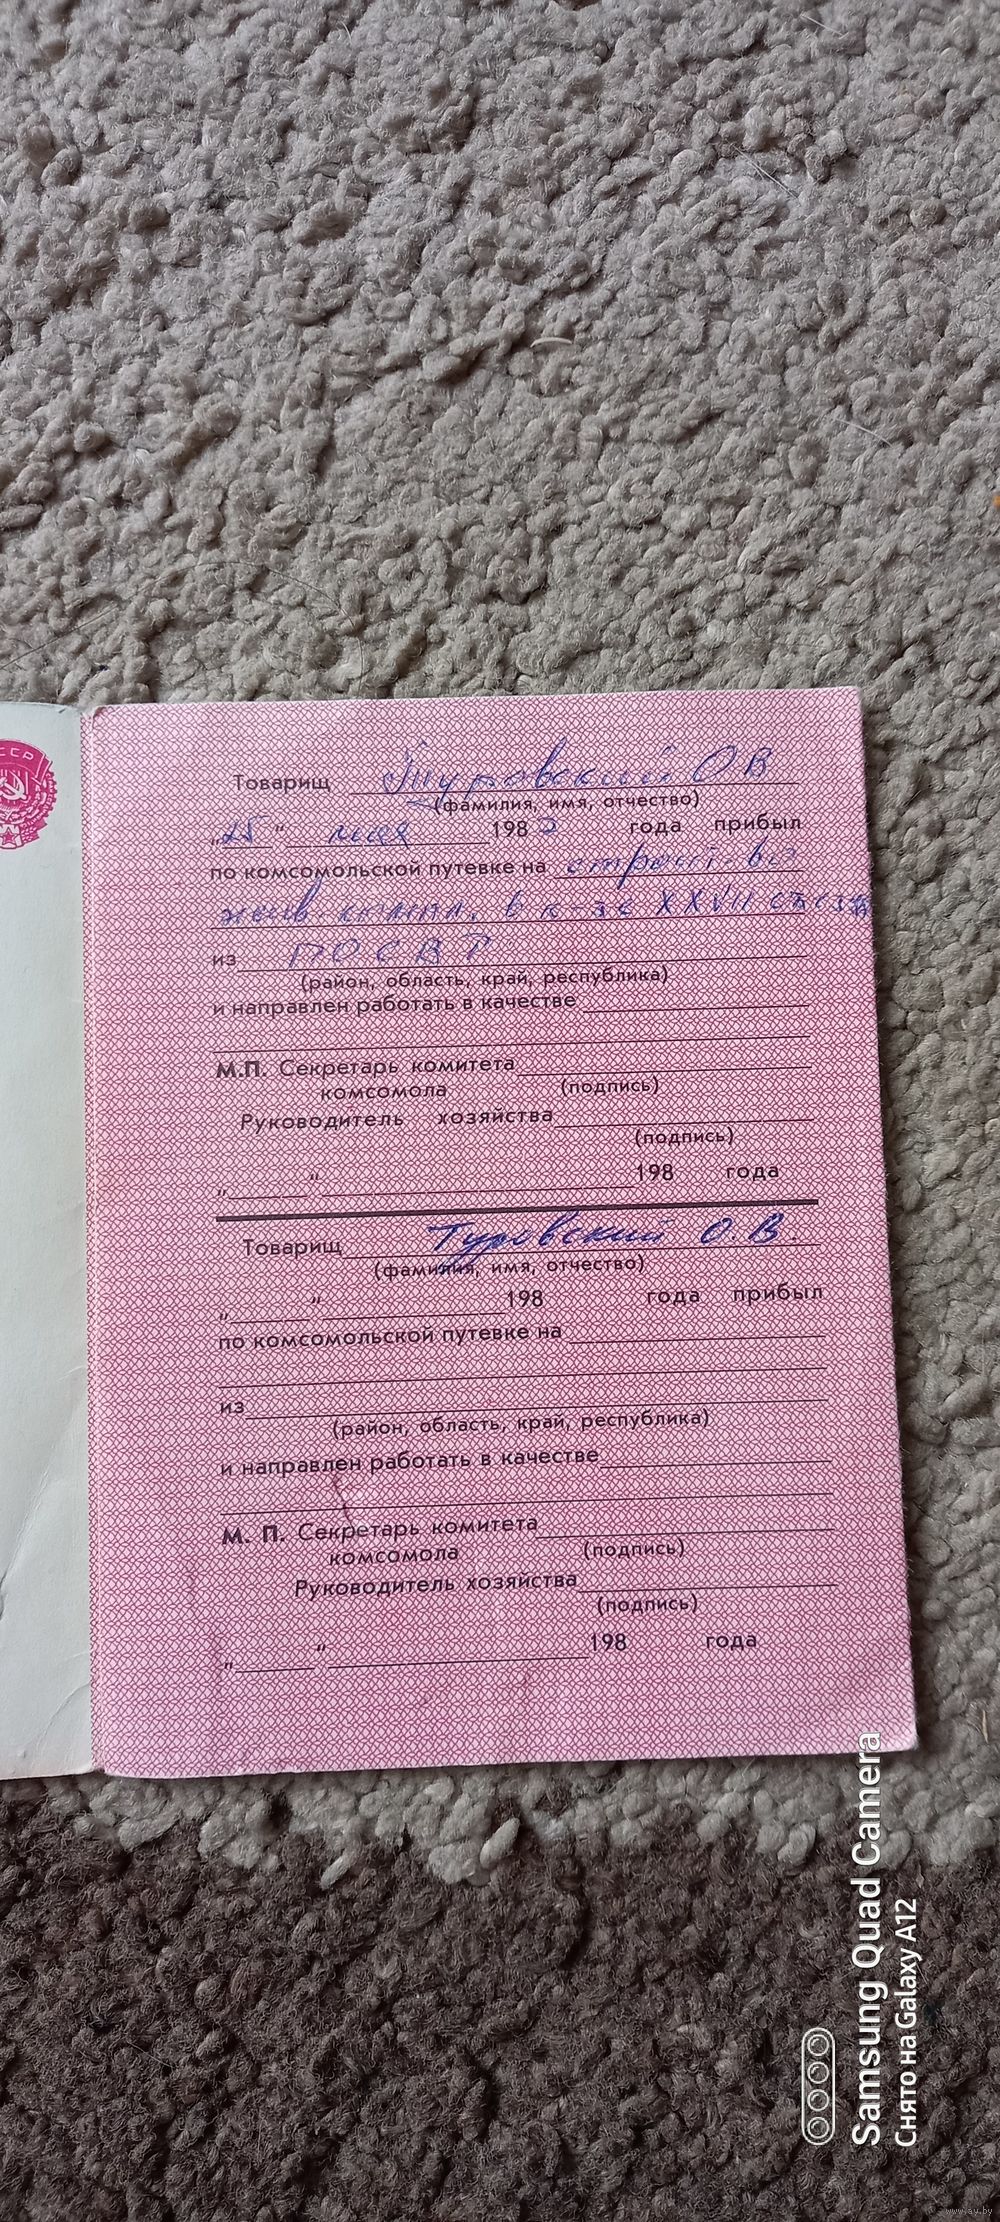 ССР
Товарищ Туровский О В
(фамилия, имя, отчество)
„25“ мая 198 года прибыл
по комсомольской путевке на строит-во
жив. в к-зе XXVII съезда
из ПОСВТ
(район, область, край, республика)
и направлен работать в качестве
М.П. Секретарь комитета
комсомола (подпись)
Руководитель хозяйства
(подпись)
„ “ 198 года
Товарищ Туровский О.В.
(фамилия, имя, отчество)
„ “ 198 года прибыл
по комсомольской путевке на
из
(район, область, край, республика)
и направлен работать в качестве
М. П. Секретарь комитета
комсомола (подпись)
Руководитель хозяйства
(подпись)
„ “ 198 года
Samsung Quad Camera
Снято на Galaxy A12
www.ay.by